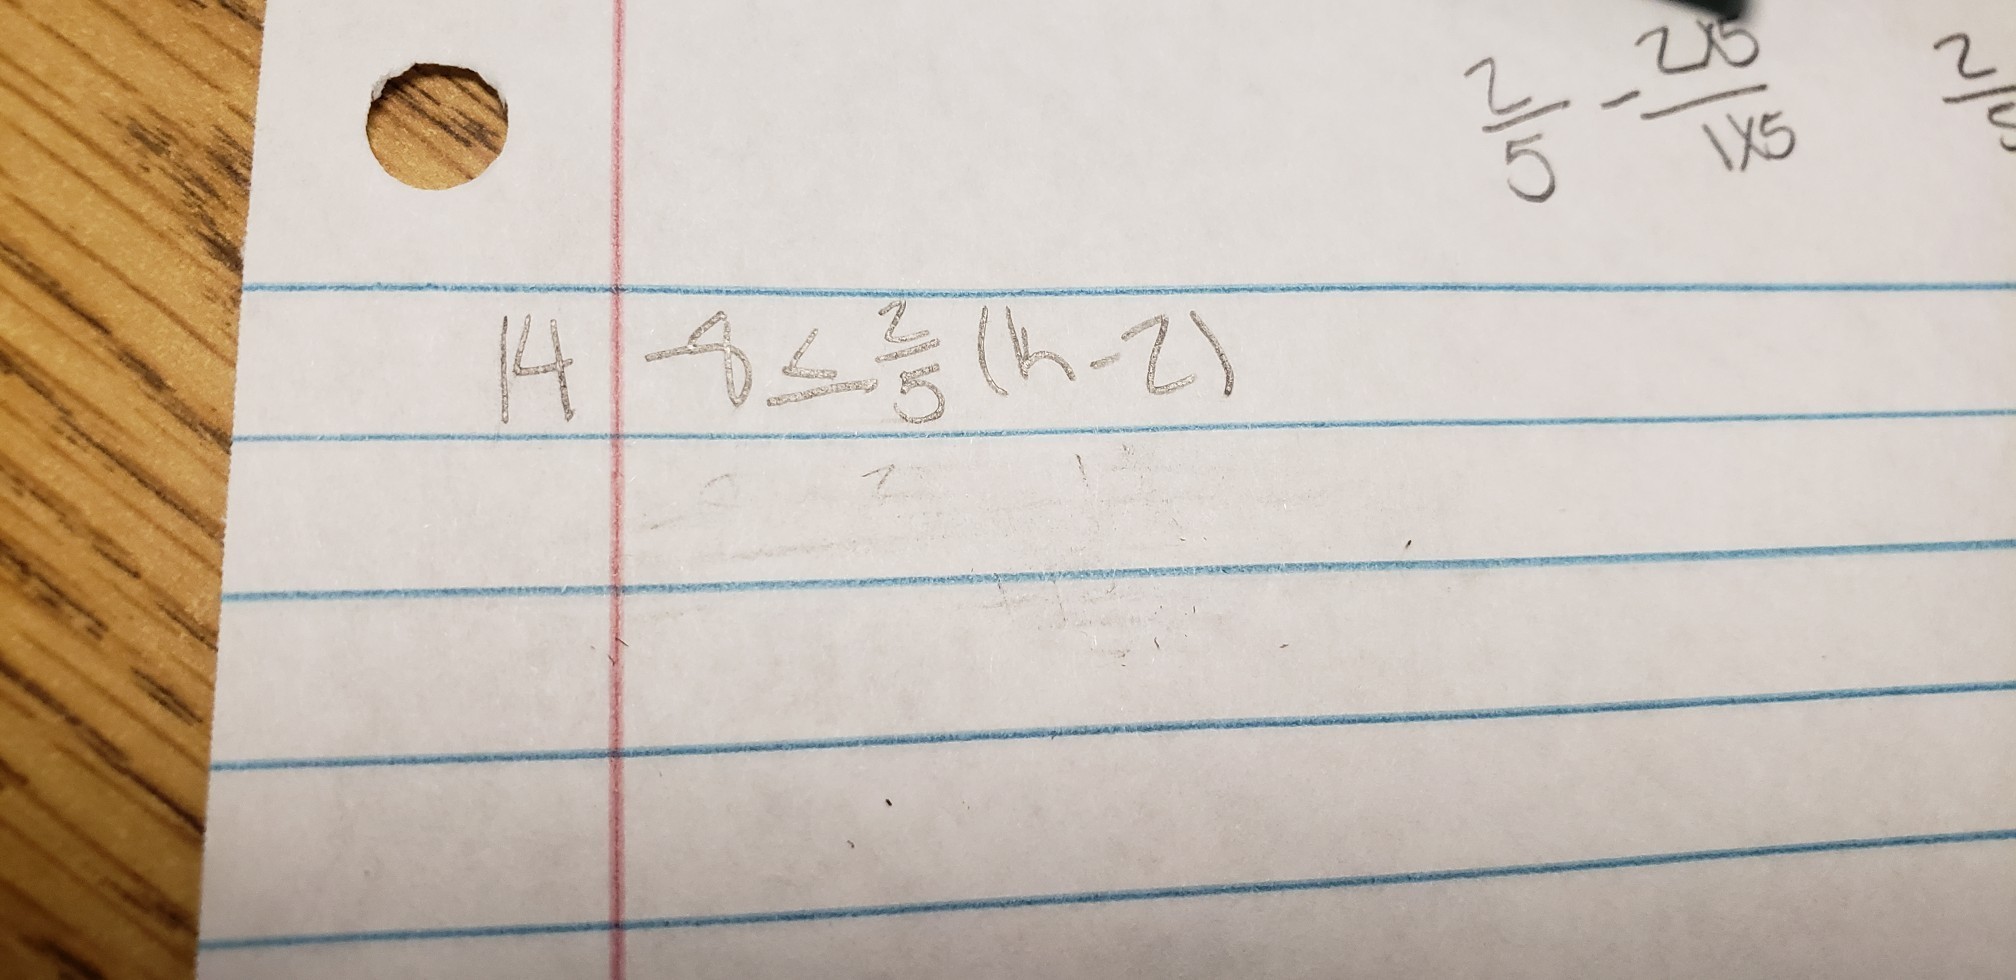 2/5 - 2x5/1x5 2/5
14 -8 ≤ 2/5 (h-2)